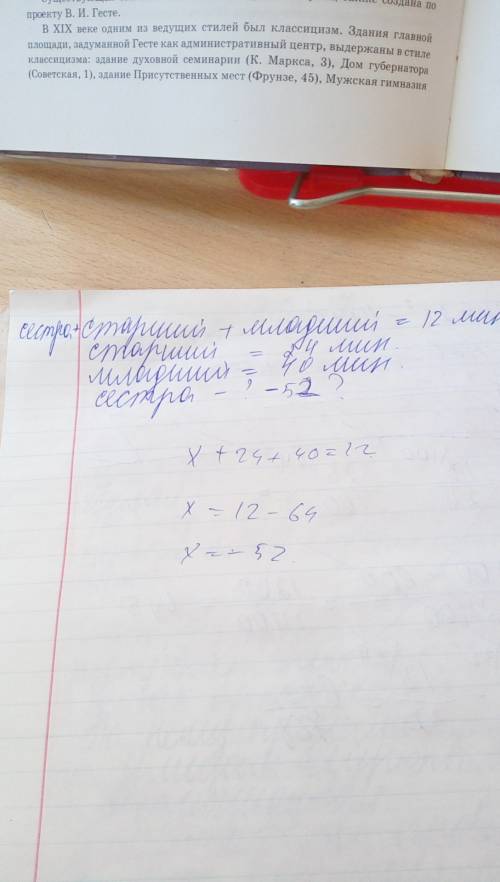 проекту В. И. Гесте.
В XIX веке одним из ведущих стилей был классицизм. Здания главной
площади, задуманной Гесте как административный центр, выдержаны в стиле
классицизма: здание духовной семинарии (К. Маркса, 3), Дом губернатора
(Советская, 1), здание Присутственных мест (Фрунзе, 45), Мужская гимназия
сестра+старший + младший = 12 мин
старший = 24 мин.
младший = 40 мин.
сестра - ? -52 ?
x + 24 + 40 = 12
x = 12 - 64
x = - 52